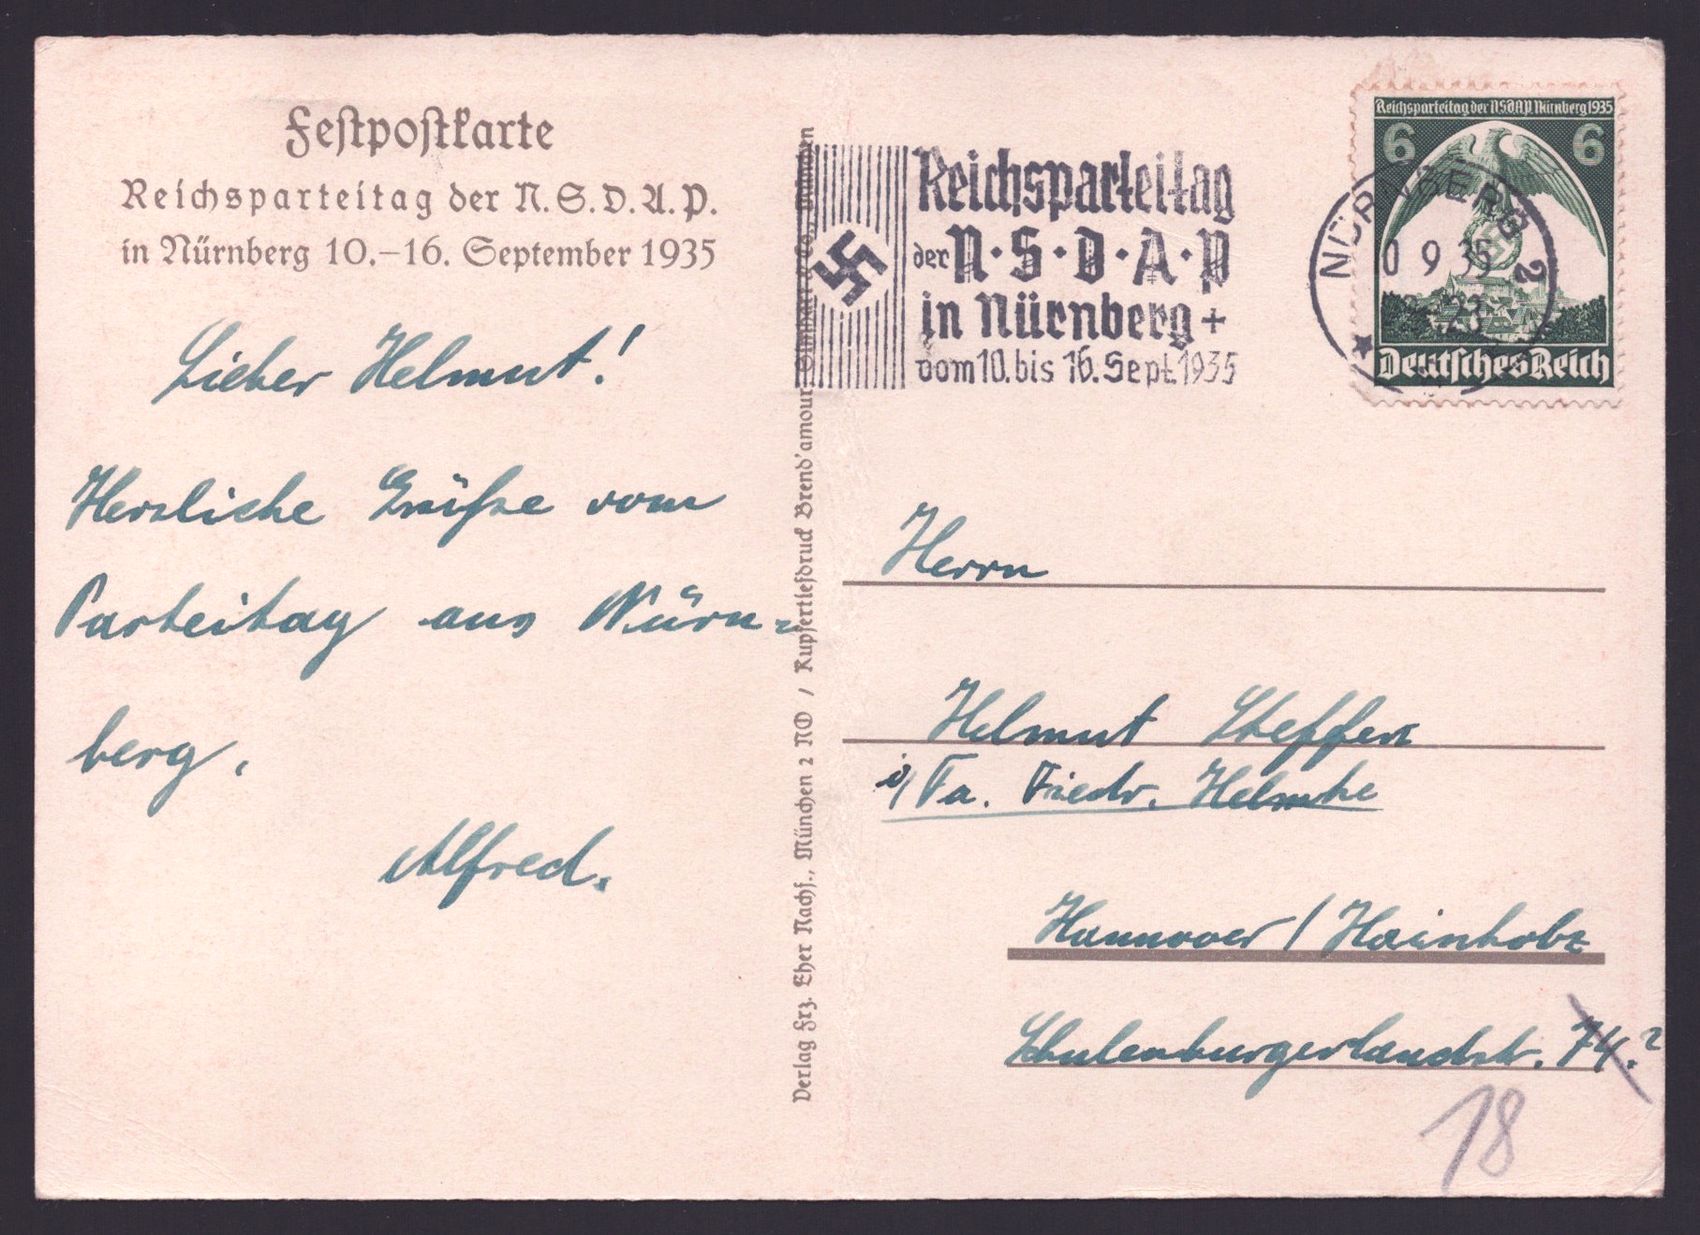 Festpostkarte
Reichsparteitag der N.S.D.A.P.
in Nürnberg 10.–16. September 1935
Lieber Helmut!
Herzliche Grüße vom
Parteitag aus Nürn-
berg.
Alfred.
Verlag Frz. Eher Nachf., München 2 NO / Kupfertiefdruck Brend'amour, Simhart & Co., München
Reichsparteitag
der N·S·D·A·P
in Nürnberg +
vom 10. bis 16. Sept. 1935
NÜRNBERG 2
0 9 35
23
Reichsparteitag der NSDAP. Nürnberg 1935
6 6
Deutsches Reich
Herrn
Helmut Steffen
i/ Fa. Friedr. Helmke
Hannover / Hainholz
Schulenburgerlandstr. 74.?
18